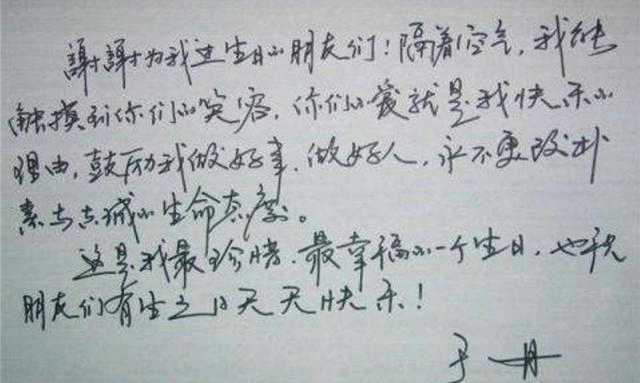 謝謝为我过生日的朋友们！隔着空气，我能
触摸到你们的笑容，你们的爱就是我快乐的
理由，鼓励我做好事、做好人，永不更改朴
素与真诚的生命态度。
这是我最珍惜、最幸福的一个生日，也祝
朋友们有生之日天天快乐！
于丹